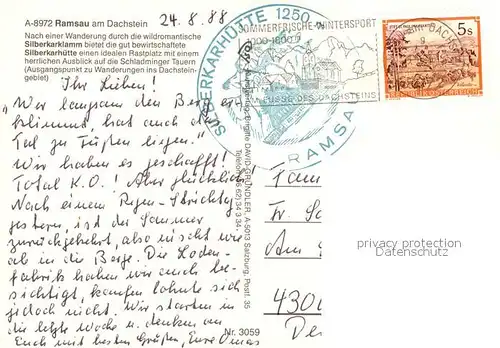 A-8972 Ramsau am Dachstein
24.8.88
Nach einer Wanderung durch die wildromantische
Silberkarklamm bietet die gut bewirtschaftete
Silberkarhütte einen idealen Rastplatz mit einem
herrlichen Ausblick auf die Schladminger Tauern
(Ausgangspunkt zu Wanderungen ins Dachstein-
gebiet)
Ihr Lieben!
"Wer langsam den Berg er-
klimmt, hat auch
Tal zu Füßen liegen."
Wir haben es geschafft!
Total K.O.! Aber glücklich!
Nach einem Regen-
gestern, ist der Sommer
zurückgekehrt, also nischt wie
ab in die Berge. Die Loden-
fabrik haben wir auch be-
sichtigt, kaufen lohnte sich
jedoch nicht. Wir starten in
die letzte Woche u. denken an
Euch mit besten Grüßen, Eure Omas
SILBERKARHÜTTE 1250
RAMSA
SOMMERFRISCHE-WINTERSPORT
1000-1800
FUSSE DES DACHSTEINS
5s
REPUBLIK ÖSTERREICH
Brigitte DAVID-GRÜNDLER, A-5013 Salzburg, Postf. 35
Telefon (06 62) 34 3 34
Nr. 3059
Fam
Fr.
Am
430
De
privacy protection
Datenschutz